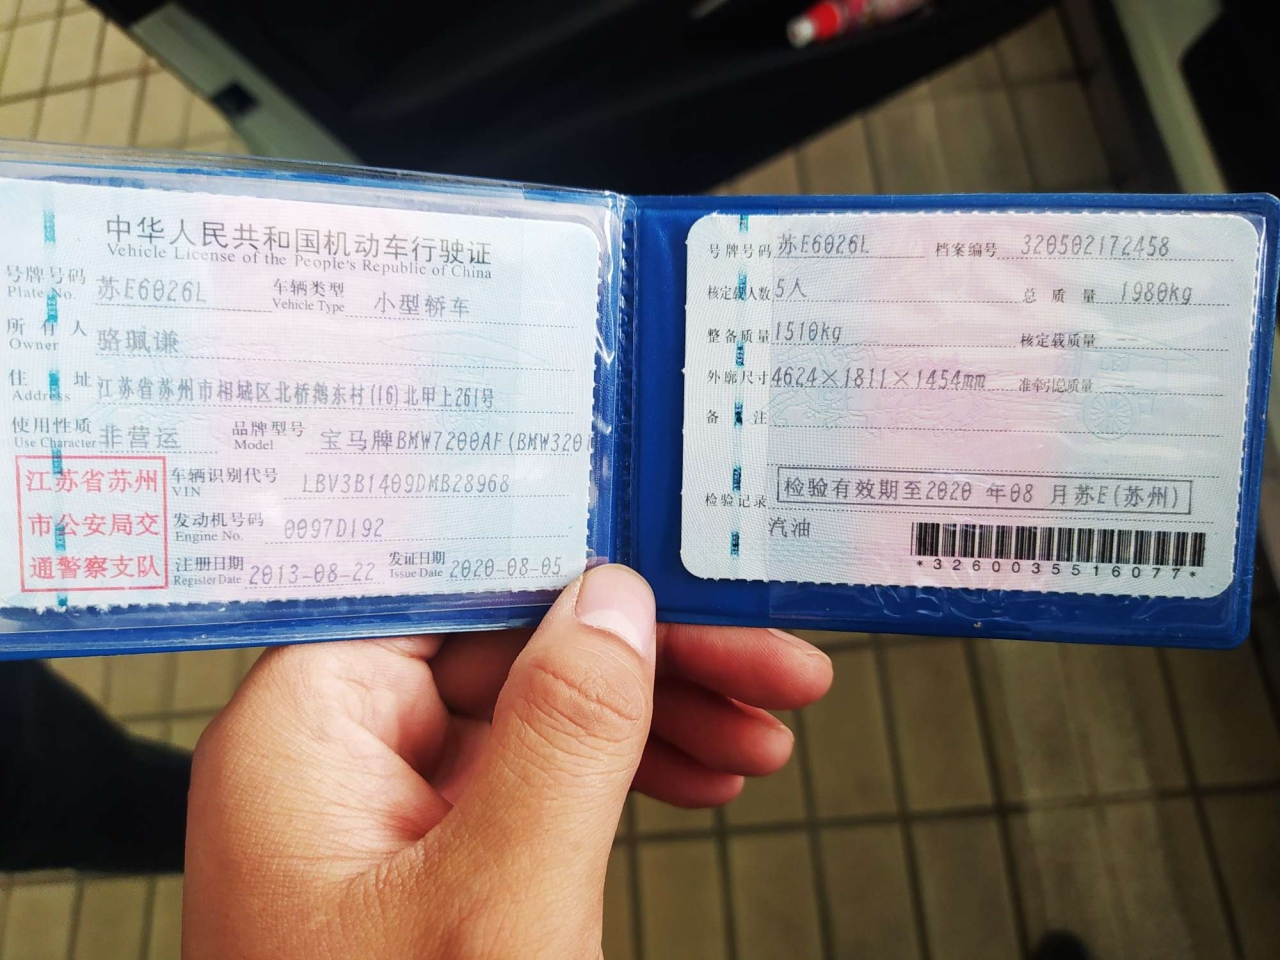 中华人民共和国机动车行驶证
Vehicle License of the People's Republic of China
号牌号码 苏E6026L 车辆类型 小型轿车
Plate No. Vehicle Type
所有人 骆珮谦
Owner
住址 江苏省苏州市相城区北桥鹅东村(16)北甲上261号
Address
使用性质 非营运 品牌型号 宝马牌BMW7200AF(BMW320
Use Character Model
江苏省苏州
市公安局交
通警察支队
车辆识别代号 LBV3B1409DMB28968
VIN
发动机号码 0097D192
Engine No.
注册日期 2013-08-22 发证日期 2020-08-05
Register Date Issue Date
号牌号码 苏E6026L 档案编号 320502172458
核定载人数 5人 总质量 1980kg
整备质量 1510kg 核定载质量 --
外廓尺寸 4624×1811×1454mm 准牵引总质量 --
备注
检验记录 检验有效期至2020 年08 月苏E(苏州)
汽油
*3260035516077*